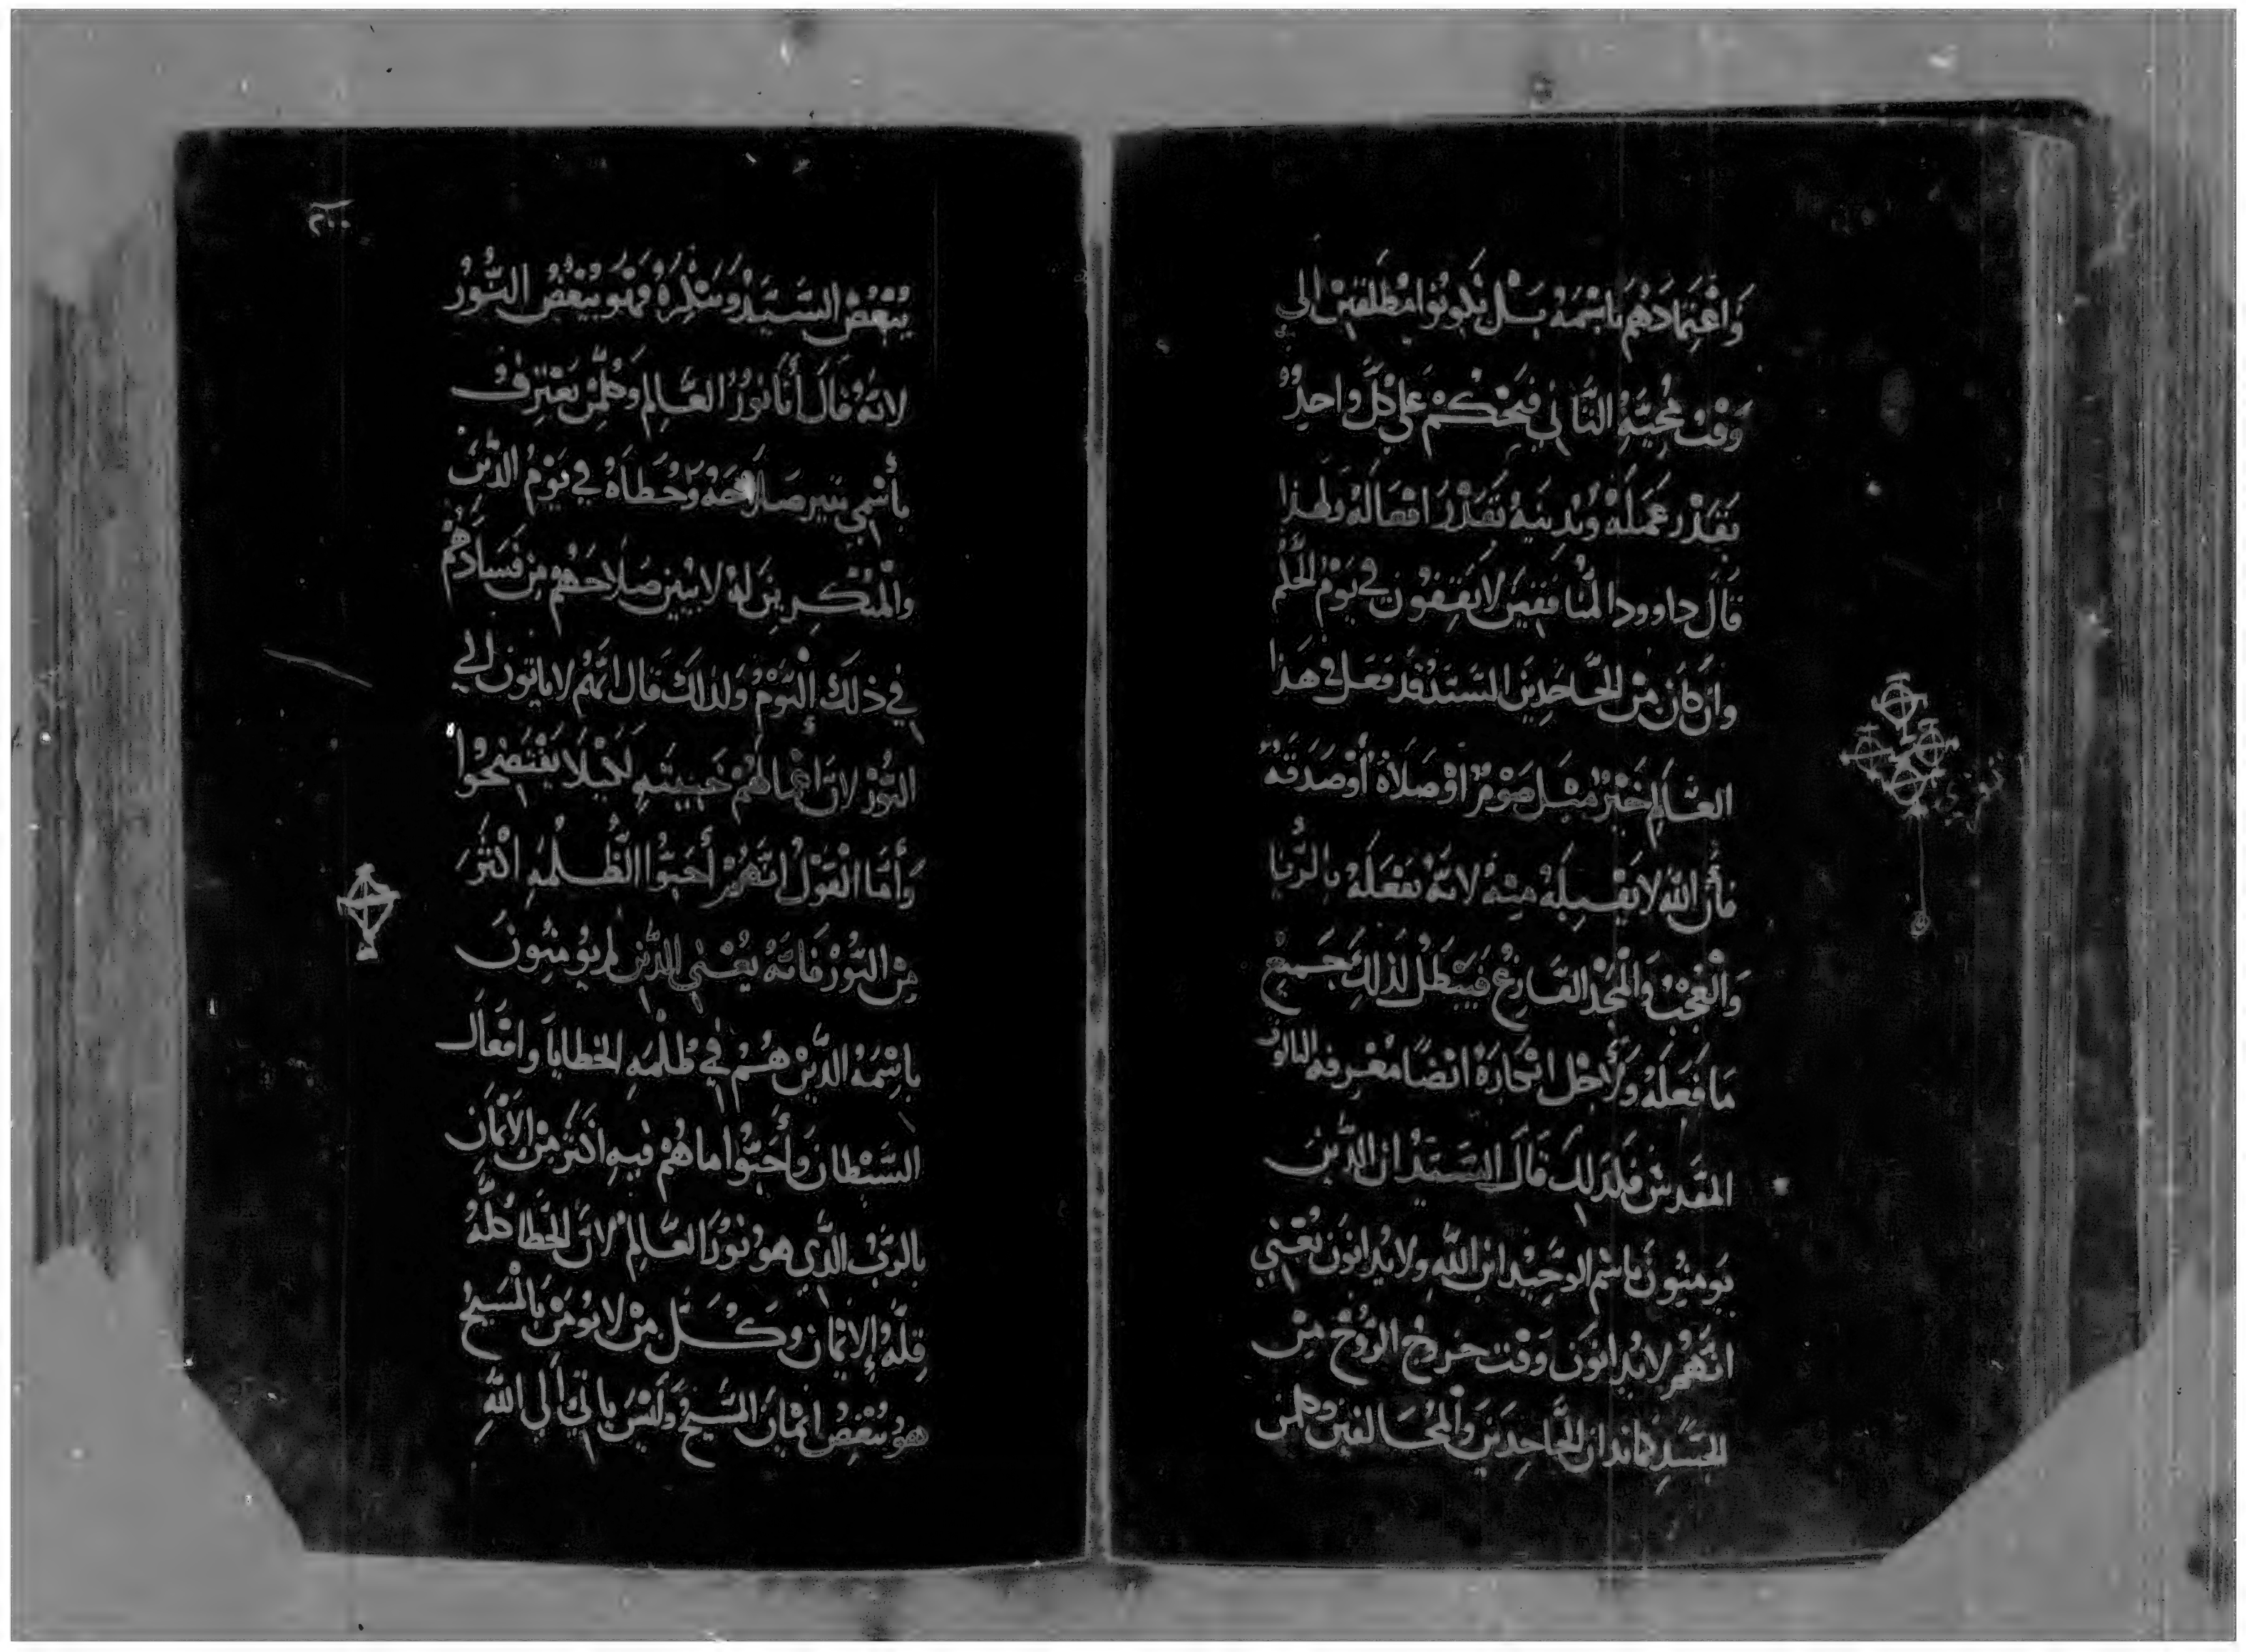 وَاعْتِمَادَهُم بِاسْمَهُ بَل يَكُونُوا مُطلَقِين الي
وَقْت مَجِيّتِهِ الثَّانِي فَيَحْكُمْ عَلي كلّ وَاحِدٌ
بقَدْر عَمَلَهُ وَيَدِينَهُ بقَدْرَ افعَالَهُ ولهذا
قَالَ داوود المُنَافقِينَ لا يَقفُون في يَوْمُ الحُكم
وان كانَ مِنْ الجَّاحِدِينَ السَيّدْ قَد فَعَل في هَذا
العَالَم خَيْرٌ مِثل صَوْمٌ أوْ صَلاةٌ أوْ صَدَقَهٌ
فأنَّ الله لا يَقبَلَهُ مِنهُ لانهُ يَفعَلَهُ بالرّيا
وَالعُجْبُ وَالمَجْد الفَارغُ فَيَبْطَل لذلك جَميعُ
مَا فَعَلَهُ وَلأجْل انكارَهُ ايْضًا مَعْرفه الثالوث
المقَدس فلذلك قَالَ السَيّدْ ان الذّينَ
يَومنُونَ باسْم الوَحِيْد ابن الله ولا يُدانوُن يَعْني
انَّهُمْ لا يُدانوُن وَقْت خروج الرُّوْحْ مِنْ
الجسَدِ كما تدان الجَّاحِدِينَ وَالمُخَالفِين وكلمن
يُبْغضُ السَيّدْ وَينكِرهُ فَهُو يُبْغضُ النُّورُ
لانهُ قَالَ أنَا نُوْرُ العَّالم وَكلمَنْ يَعْتَرفُ
بأسْمِي يَنير صَلاحَهُ وَخَطاهُ في يَوْمُ الدّينَ
وَالمُنكِرينَ لهُ لا يَبين صَلاحَهُمْ مِن فَسَادَهُمْ
في ذلَكَ اليَّوْمُ وَلذلَكَ قَالَ انَهُمْ لا ياتون الي
النُّوْر لانَ أعْمَالهُمْ خَبيثه لكَيْلا يَفتَضحُوا
وَأمَّا القَوْلُ انَّهُمْ أحَبُّوا الظُّلمه اكْثَرَ
مِنْ النُّوْر فَانَهُ يَعْني الذّين لم يُومنُونَ
باسْمَهُ الذّينْ هُمْ في ظُلمَه الخطايا وافعَال
الشَّيْطان وَأحَبُّوا ما هُمْ فيه اكثَر مِنْ الايْمَان
بالرَّبُ الذّي هو نُوْرُ العَّالم لانّ الخَطا كلّهُ
قِلَّه الايْمان وَكُلَّ مِنْ لا يُومَنْ بالمَسِيحُ
هو يُبْغضُ ايْمَانَ المسَيحْ وَليْسَ يأتي ألي الله